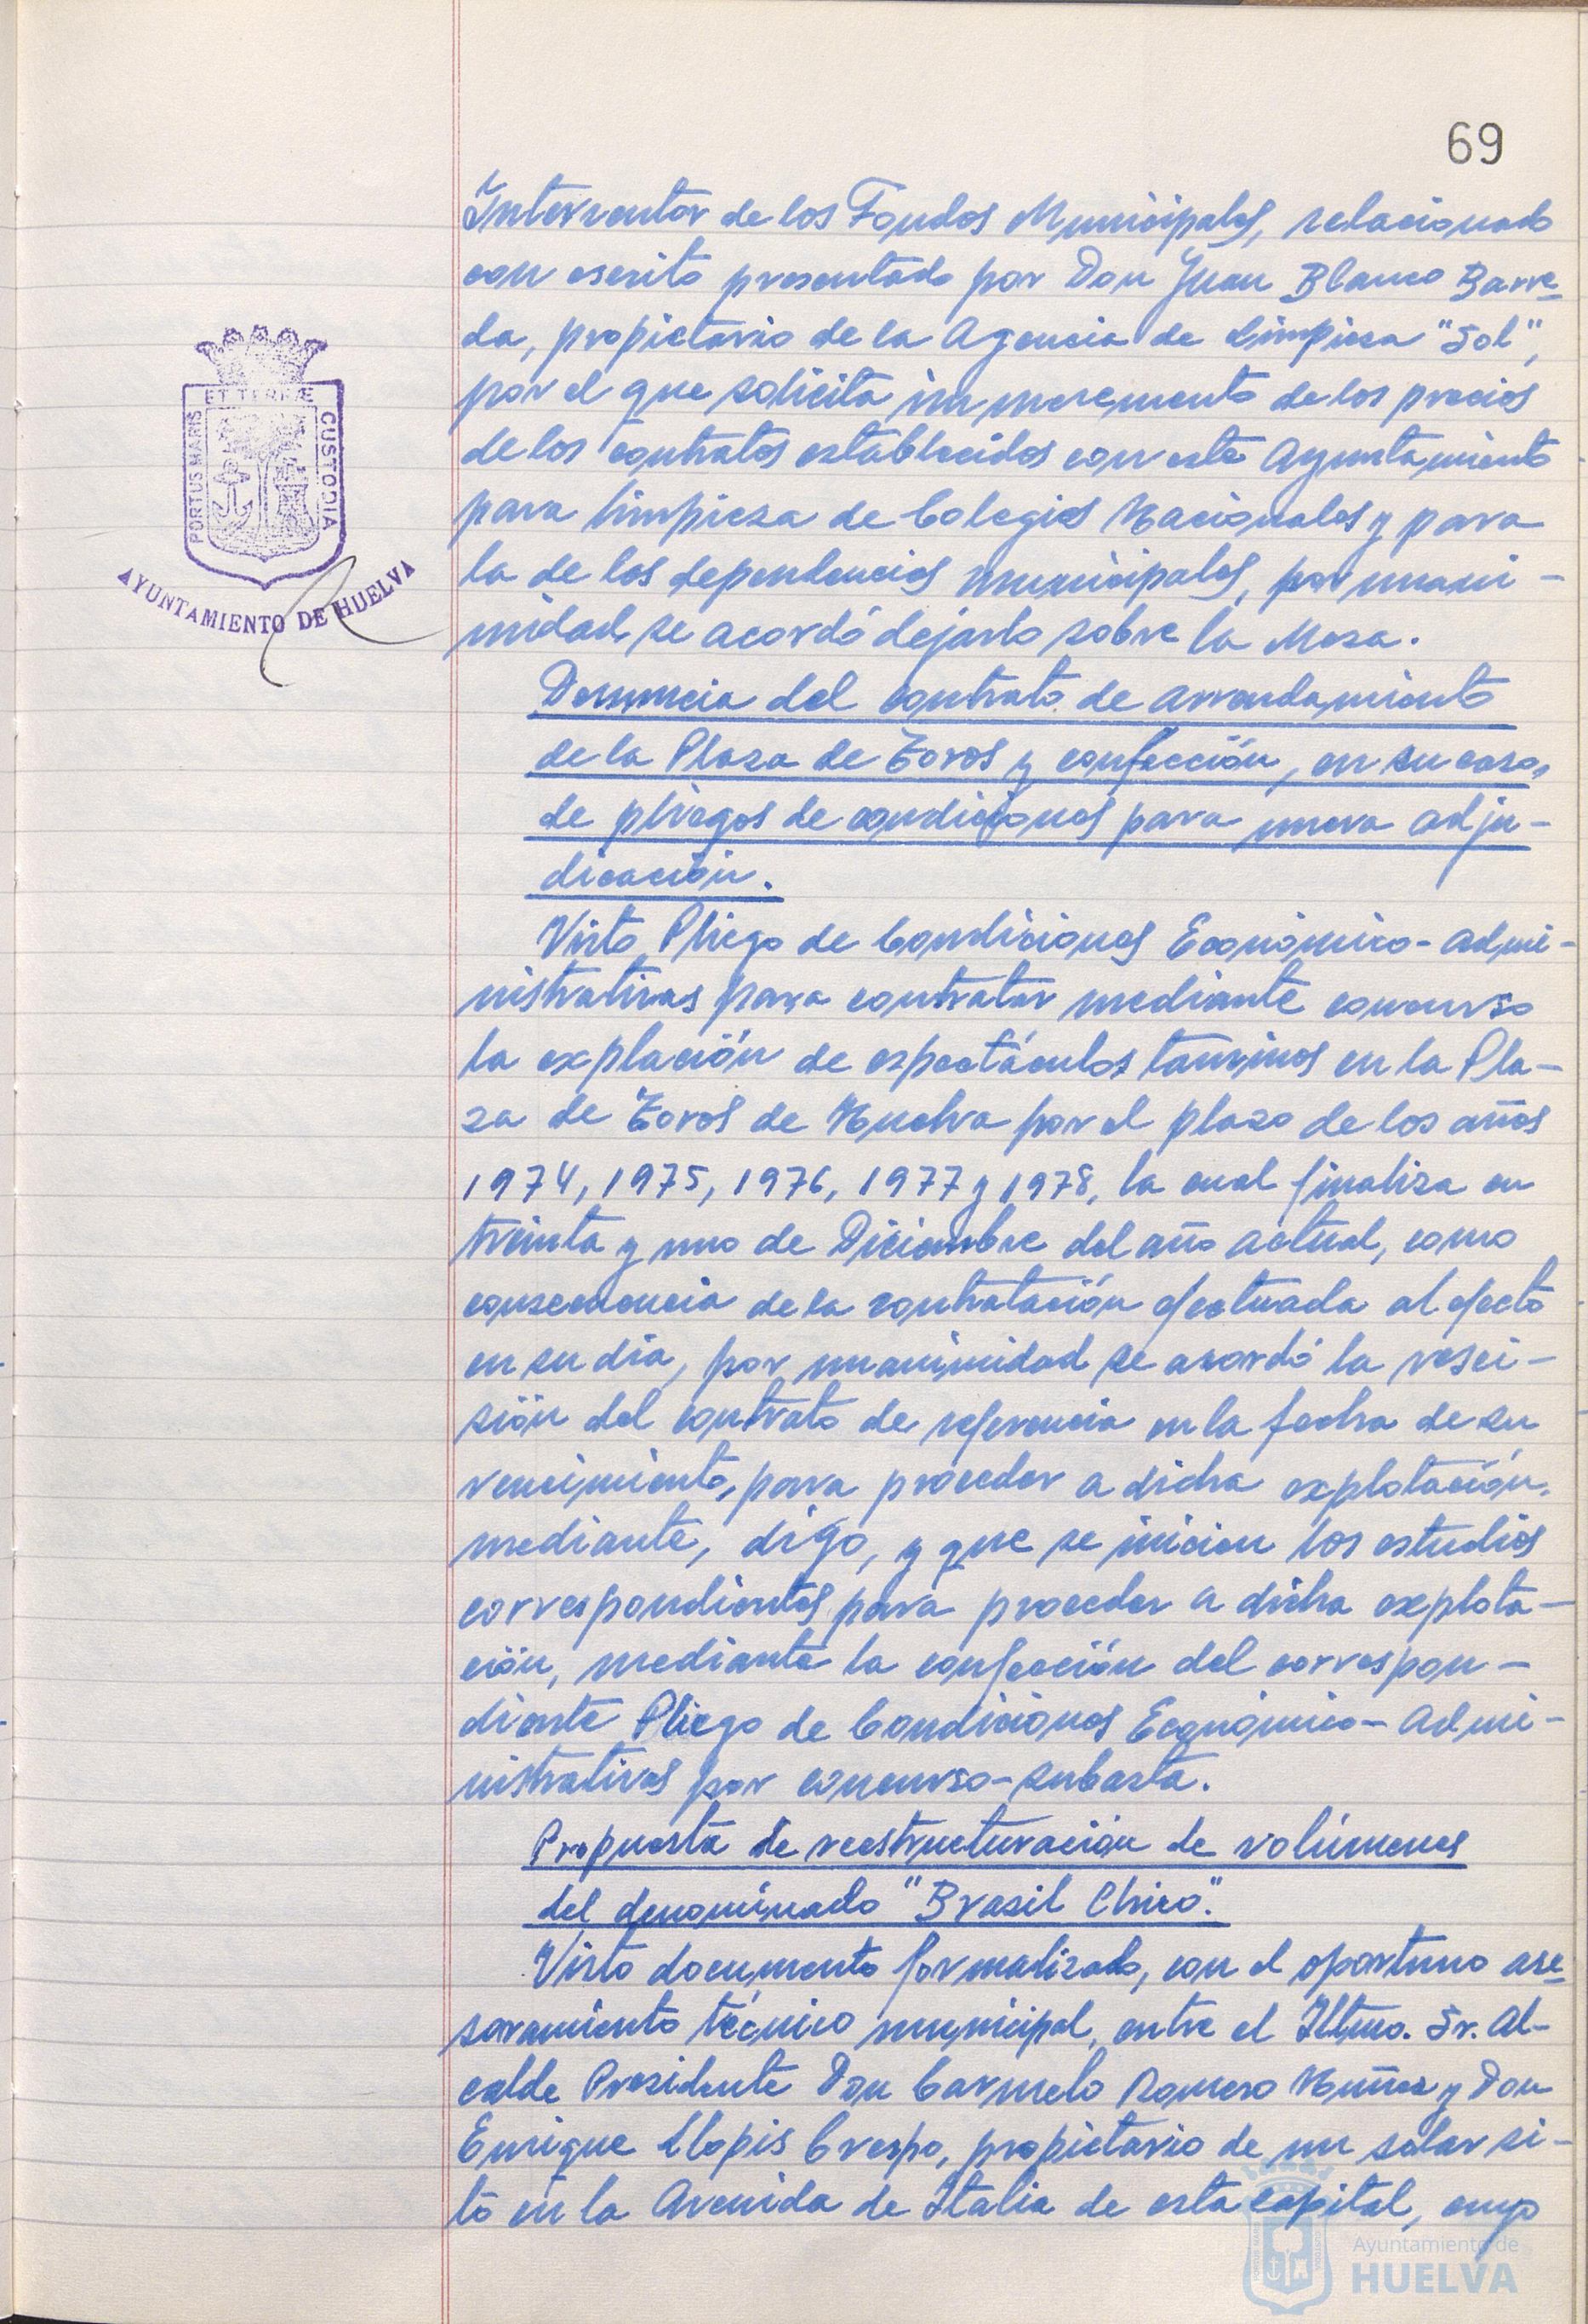 69
Interventor de los Fondos Municipales, relacionado
con escrito presentado por Don Juan Blanco Barre-
da, propietario de la Agencia de Limpieza "Sol",
por el que solicita un incremento de los precios
de los contratos establecidos con este Ayuntamiento
para limpieza de Colegios Nacionales y para
la de las dependencias municipales, por unani-
midad se acordó dejarlo sobre la Mesa.
Denuncia del contrato de arrendamiento
de la Plaza de Toros y confección, en su caso,
de pliegos de condiciones para nueva adju-
dicación.
Visto Pliego de Condiciones Económico-Admi-
nistrativas para contratar mediante concurso
la explación de espectáculos taurinos en la Pla-
za de Toros de Huelva por el plazo de los años
1974, 1975, 1976, 1977 y 1978, la cual finaliza en
treinta y uno de Diciembre del año actual, como
consecuencia de la contratación efectuada al efecto
en su día, por unanimidad se acordó la resci-
sión del contrato de referencia en la fecha de su
vencimiento, para proceder a dicha explotación,
mediante, digo, y que se inicien los estudios
correspondientes para proceder a dicha explota-
ción, mediante la confección del correspon-
diente Pliego de Condiciones Económico-Admi-
nistrativas por concurso-subasta.
Propuesta de reestructuración de volúmenes
del denominado "Brasil Chico".
Visto documento formalizado, con el oportuno ase-
soramiento técnico municipal, entre el Iltmo. Sr. Al-
calde Presidente Don Carmelo Romero Núñez y Don
Enrique Llopis Crespo, propietario de un solar si-
to en la Avenida de Italia de esta capital, cuyo
PORTUS MARIS
ET TERRÆ
CUSTODIA
AYUNTAMIENTO DE HUELVA
Ayuntamiento de
HUELVA